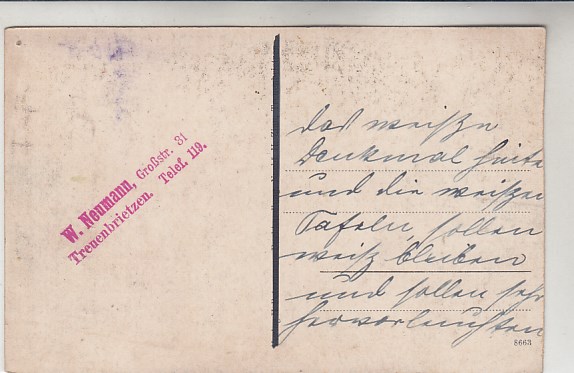 W. Neumann, Großstr. 31
Treuenbrietzen. Telef. 119.
das weiße
Denkmal heute
und die weißen
Tafeln, sollen
weiß bleiben
und sollen sehr
hervorleuchten
8663